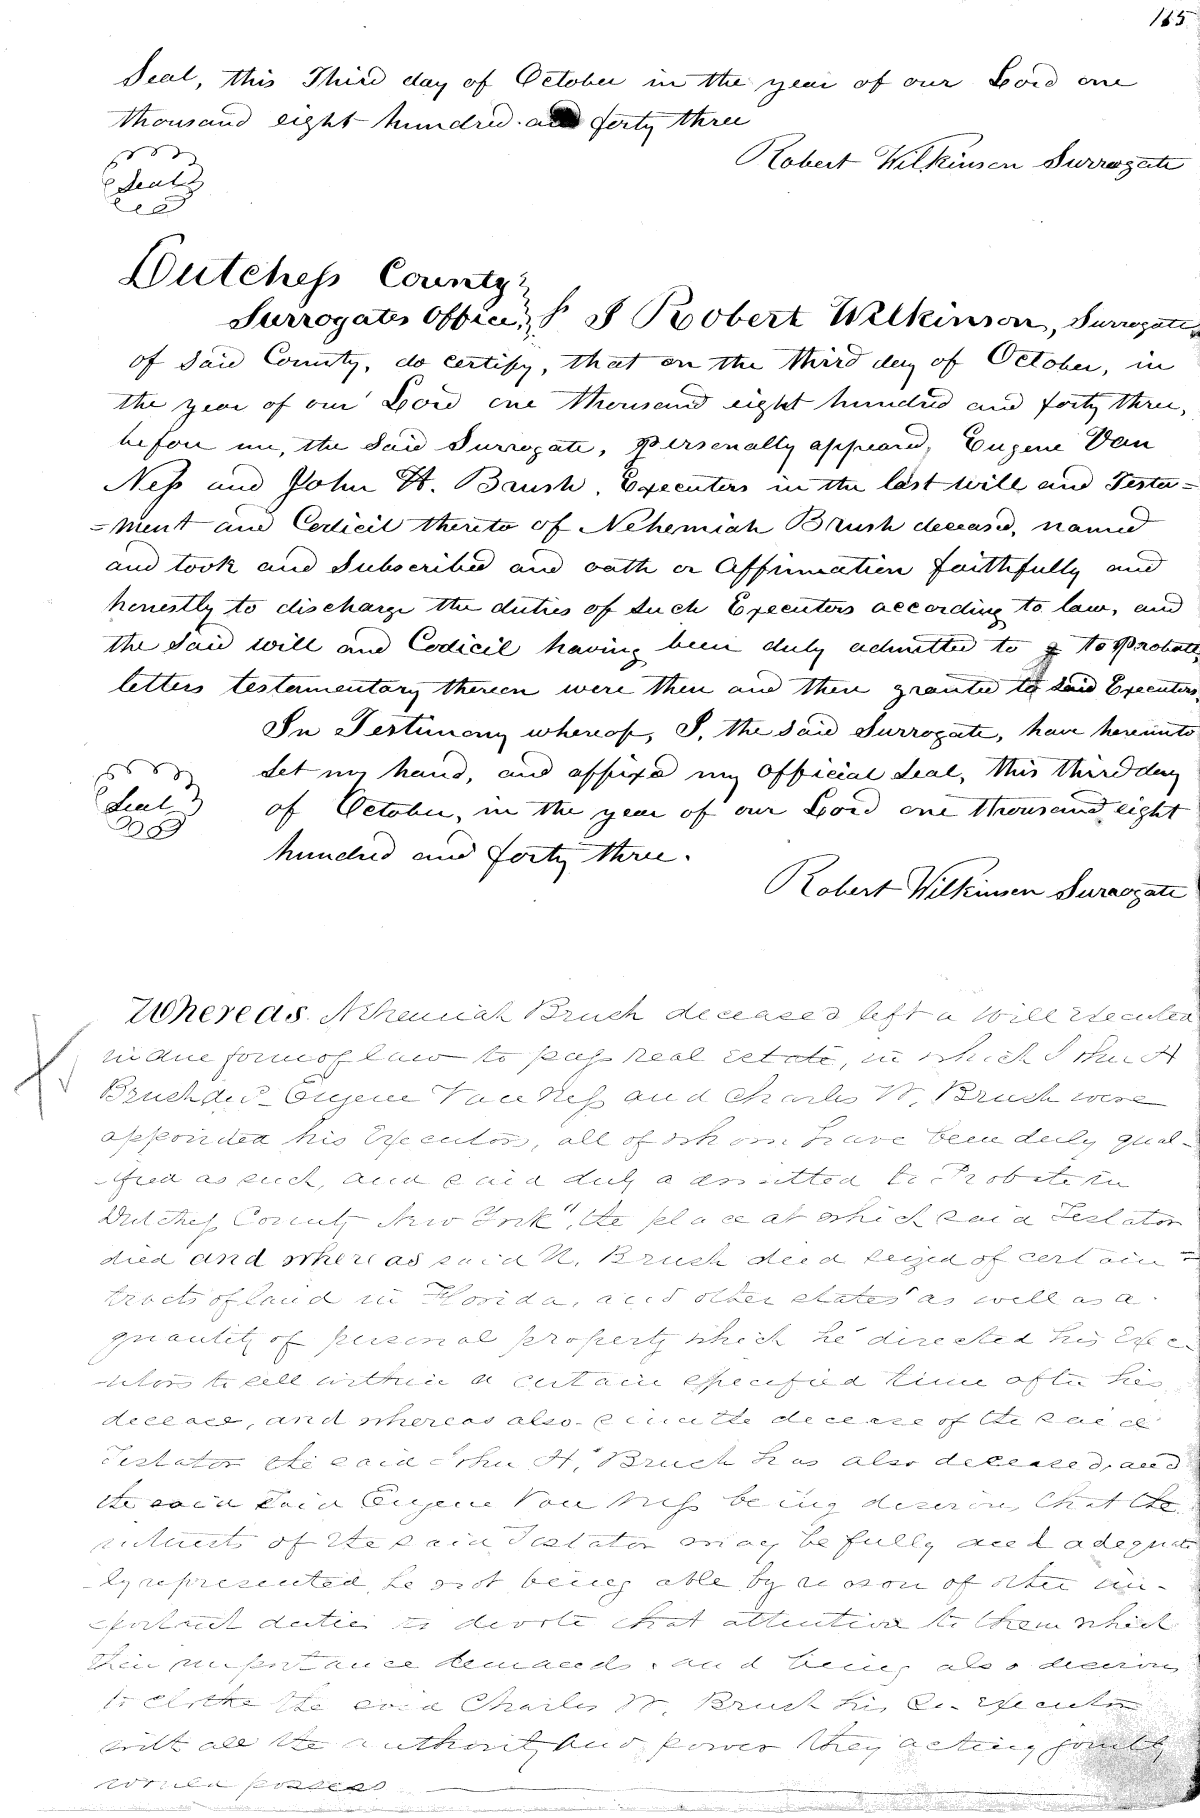 165
Seal, this Third day of October in the year of our Lord one
thousand eight hundred and forty three
Robert Wilkinson Surrogate
Seal
Dutchess County
Surrogates Office, ss I Robert Wilkinson, Surrogate
of said County, do certify, that on the third day of October, in
the year of our Lord one thousand eight hundred and forty three,
before me, the said Surrogate, personally appeared, Eugene Van
Ness and John H. Brush, Executors in the last will and Testa=
=ment and Codicil thereto of Nehemiah Brush deceased, named
and took and subscribed and oath or Affirmation faithfully and
honestly to discharge the duties of such Executors according to law, and
the said will and Codicil having been duly admitted to to Probate,
letters testamentary thereon were then and there granted to said Executors.
In Testimony whereof, I, the said Surrogate, have hereunto
set my hand, and affixed my official seal, this third day
Seal
of October, in the year of our Lord one thousand eight
hundred and forty three.
Robert Wilkinson Surrogate
Whereas Nehemiah Brush deceased left a will executed
in due form of law to pass real estate, in which John H
Brush decd. Eugene Van Ness and Charles W. Brush were
appointed his Executors, all of whom have been duly qual-
-ified as such, and said duly admitted to Probate in
Dutchess County New York", the place at which said Testator
died and whereas said N. Brush died seized of certain =
tracts of land in Florida, and other states as well as a
quantity of personal property which he directed his Exec-
-utors to sell within a certain specified time after his
decease, and whereas also since the decease of the said
Testator the said John H. Brush has also deceased, and
the said said Eugene Van Ness being desirous that the
interests of the said Testator may be fully and adequate
-ly represented, he not being able by reason of other im-
-portant duties to devote that attention to them which
their importance demands. and being also desirous
to clothe the said Charles W. Brush his Co-Executor
with all the authority and power they acting jointly
would possess